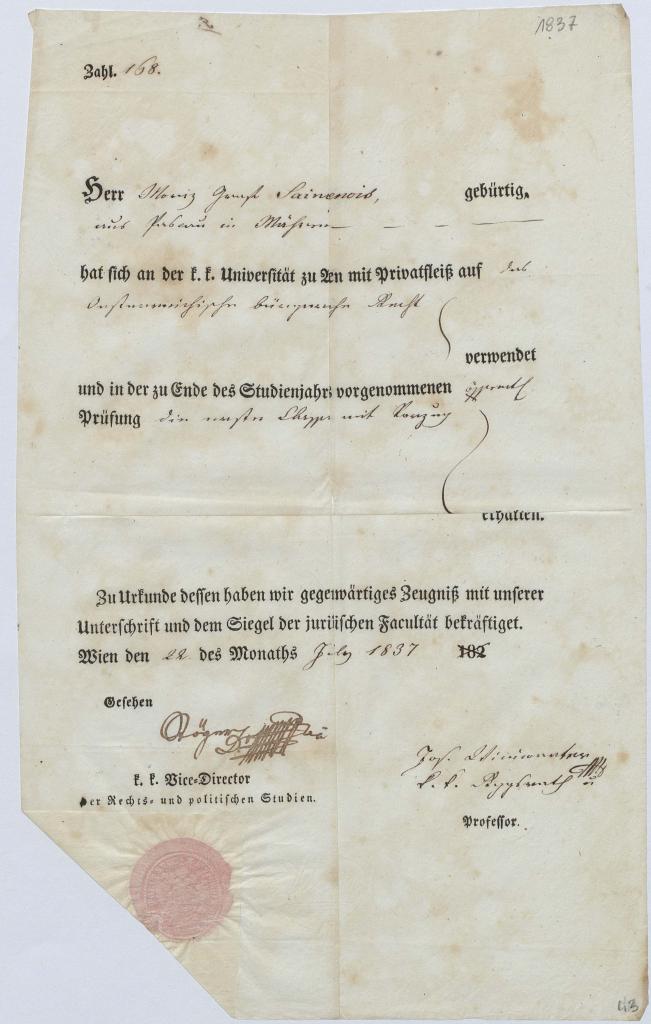 1837
Zahl. 168.
Herr Moriz Graf Sainenois, gebürtig,
aus Paskau in Mähren
hat sich an der k. k. Universität zu Wien mit Privatfleiß auf das
Oesterreichische bürgerliche Recht
verwendet
und in der zu Ende des Studienjahrs vorgenommenen
Prüfung die erste Classe mit Vorzug
erhalten.
Zu Urkunde dessen haben wir gegenwärtiges Zeugniß mit unserer
Unterschrift und dem Siegel der juridischen Facultät bekräftiget.
Wien den 22 des Monaths July 1837 182
Gesehen
Jos. Winiwarter
k. k.
k. k. Vice-Director
der Rechts- und politischen Studien.
Professor.
43